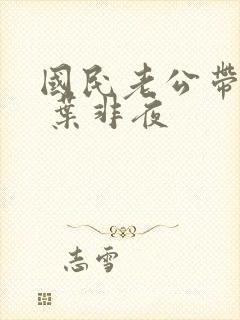 國民老公帶
葉非夜
志雪